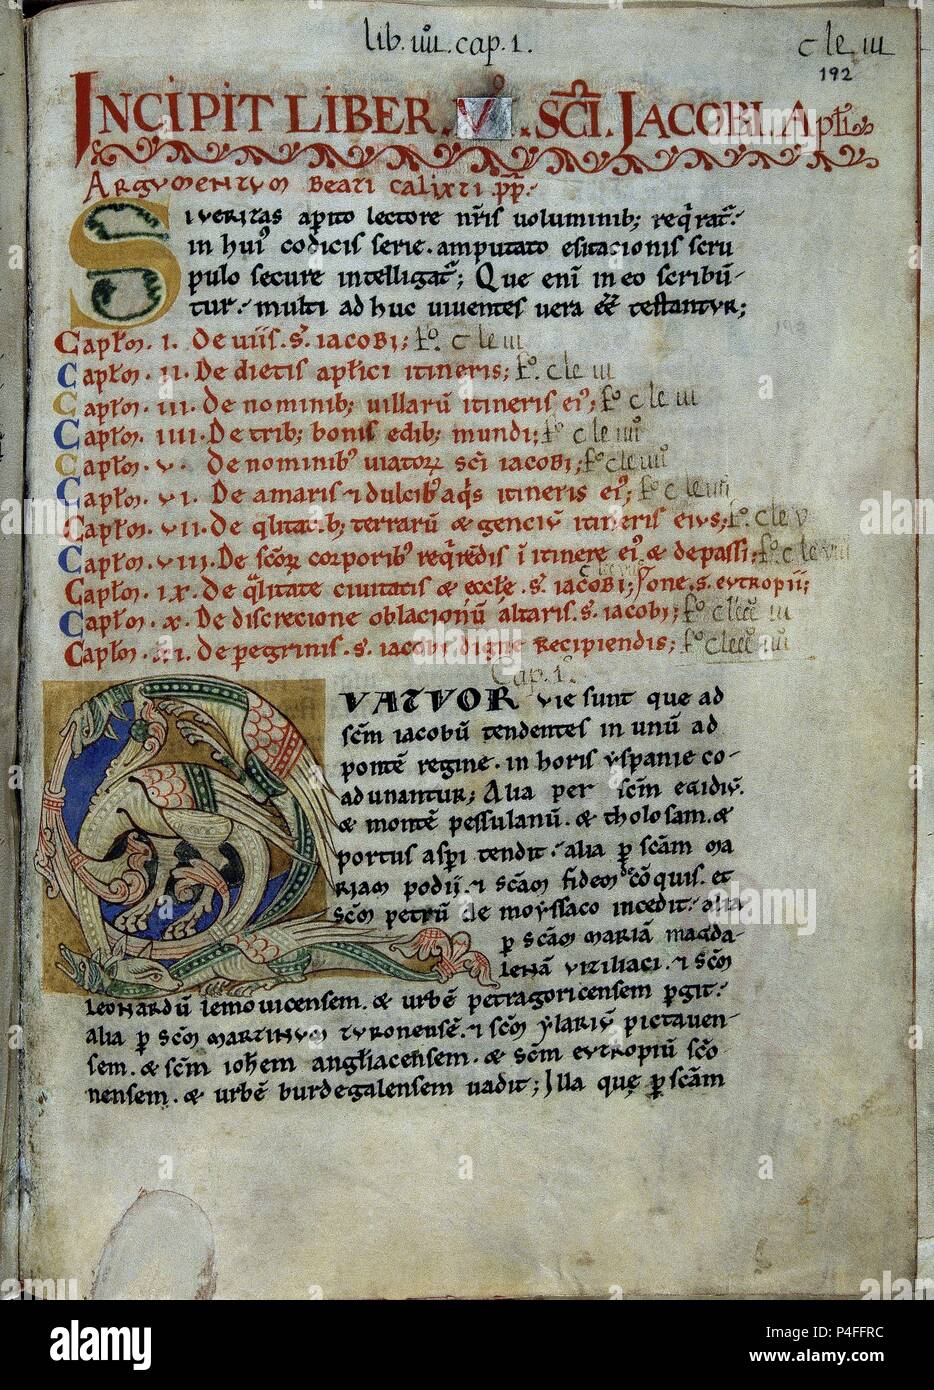 lib. iiii. cap. 1.
c le iii
192
INCIPIT LIBER . V° . SCI . JACOBI . Aptli
Argumentum beati calixti .pp.
Si veritas a perito lectore nris voluminib; reqrat.
in hui' codicis serie. amputato esitacionis scru
pulo secure intelligat; Que eni in eo scribun-
tur. multi ad huc viventes vera ee testantur;
Captlm. I. De viis. s. iacobi; fo. c le iii
Captlm. II. De dietis aptlici itineris; fo. c le iii
Captlm. III. De nominib; villarū itineris ei'; fo c le iii
Captlm. IIII. De trib; bonis edib; mundi; fo c le iiii
Captlm. V. De nominib' viatorꝝ sci iacobi; fo c le iiii
Captlm. VI. De amaris ⁊ dulcib' aqis itineris ei'; fo c le iiii
Captlm. VII. De qlitatib; terrarū & genciū itineris eius; fo. c le v
Captlm. VIII. De scorꝝ corporib' reqrēdis ī itinere ei' & de passi; fo c le viii
Captlm. IX. De qlitate civitatis & eccle. s. iacobi; one. s. eutropii;
Captlm. X. De discrecione oblacionū altaris. s. iacobi; fo
Captlm. XI. De peregrinis. s. iacobi digne recipiendis; fo
Cap. 1°
QUATUOR vie sunt que ad
scm iacobū tendentes in unū ad
pontē regine. in horis yspanie co-
adunantur; Alia per scm egidiū.
& montē pessulanū. & tholosam. &
portus aspi tendit. alia p scam ma
riam podii. ⁊ scam fidem de cōquis. et
scm petrū de moyssaco incedit. alia
p scam mariā magda-
lenā viziliaci. ⁊ scm
leonardū lemovicensem. & urbē petragoricensem pgit.
alia p scm martinum turonensē. ⁊ scm ylariū pictaven-
sem. & scm iohem angliacensem. & scm eutropiū scō
nensem. & urbē burdegalensem vadit; Illa que p scam
alamy
Image ID: P4FFRC
www.alamy.com